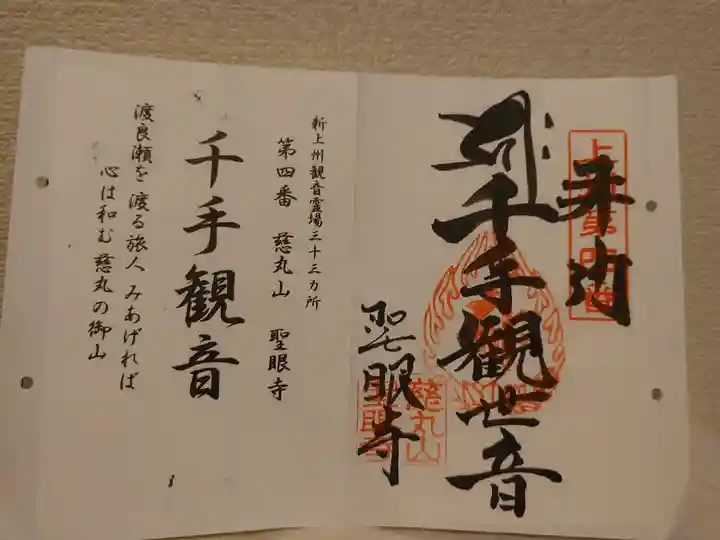 奉拝
上州第四番
千手観世音
聖眼寺
慈丸山
聖眼寺
新上州観音霊場三十三カ所
第四番 慈丸山 聖眼寺
千手観音
渡良瀬を渡る旅人みあげれば
心は和む慈丸の御山